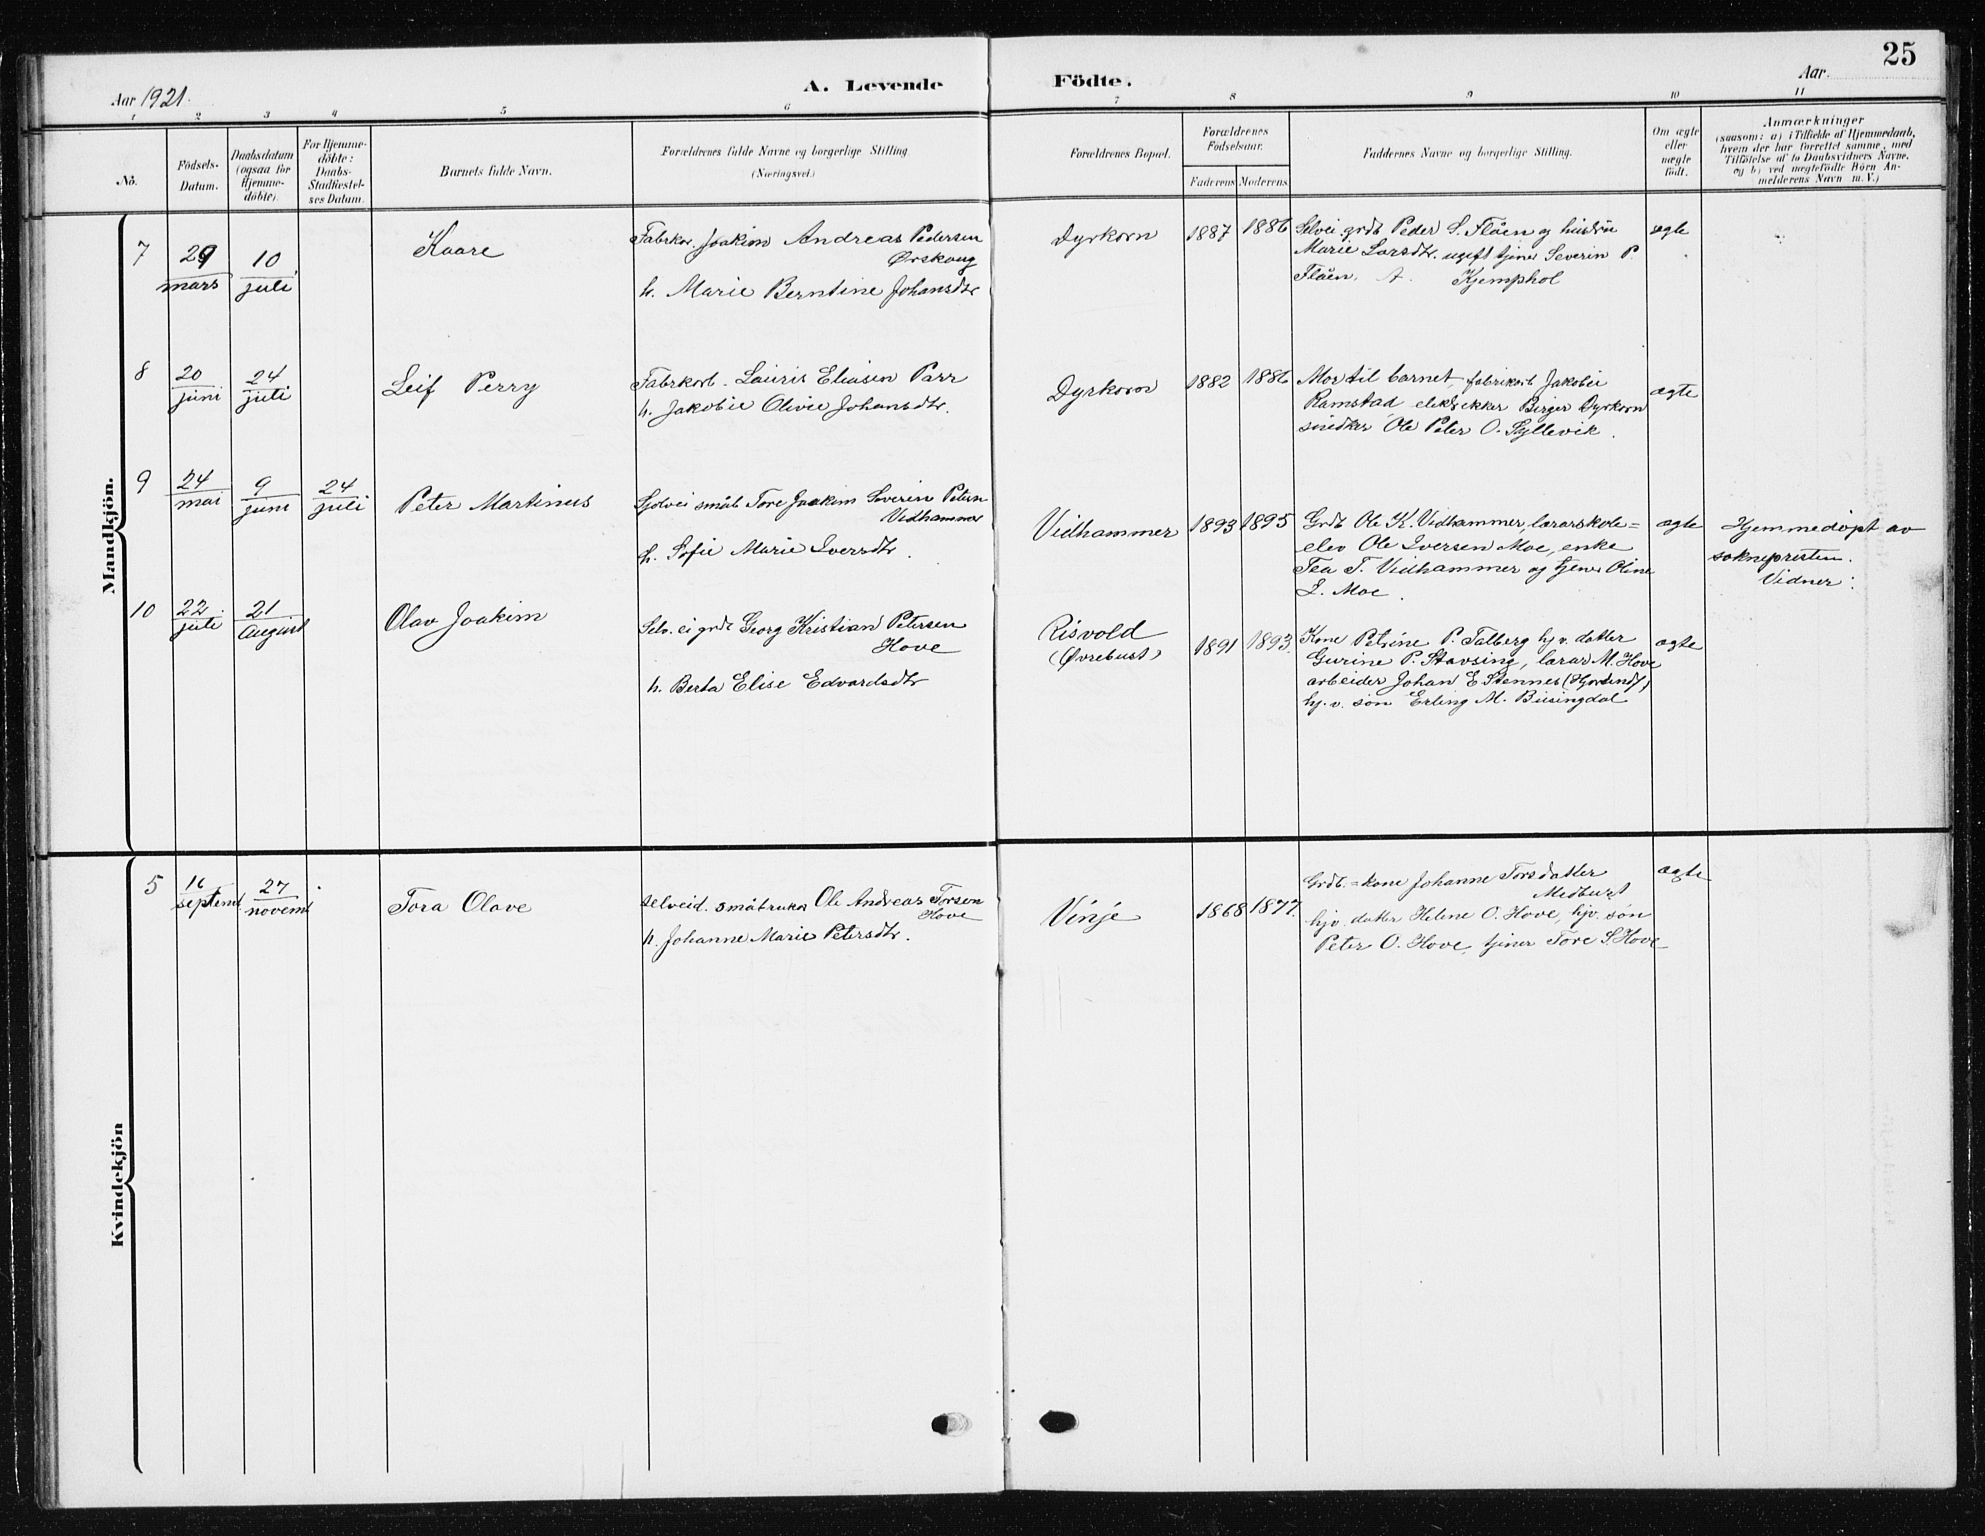 25
Aar 1921.
A. Levende
Födte.
Aar.
1 2 3 4 5 6 7 8 9 10 11
No.
Födsels-
Datum.
Daabsdatum
(ogsaa for
Hjemme-
döbte).
For Hjemme-
döbte:
Daabs-
Stadfæstel-
ses Datum.
Barnets fulde Navn.
Forældrenes fulde Navne og borgerlige Stilling
(Næringsvei.)
Forældrenes Bopæl.
Forældrenes
Födselsaar.
Faderens
Moderens
Faddernes Navne og borgerlige Stilling.
Om ægte
eller
uægte
födt.
Anmærkninger
(saasom: a) i Tilfælde af Hjemmedaab,
hvem der har forrettet samme, med
Tilföielse af to Daabsvidners Navne,
og b) ved uægtefödte Börn An-
melderens Navn m. V.)
Mandkjön.
7
29
mars
10
juli
Kaare
Fabrkar. Joakim Andreas Pedersen
Ørskoug
h. Marie Berntine Johansdtr
Dyrkorn
1887
1886
Selvei. grdb Peder S. Flåen og hustru
Marie Larsdtr. ugift tjener Severin P.
Flåen. A. Kjemphol
ægte
8
20
juni
24
juli
Leif Perry
Fabrkarb. Lauris Eliasen Parr
h. Jakobie Olivie Johansdtr.
Dyrkorn
1882
1886
Mor til barnet, fabrikarb Jakobie
Ramstad elektrikker Birger Dyrkorn
snedker Ole Peter O. Syllevik.
ægte
9
24
mai
9
juni
24
juli
Peter Martinus
Sjolvei småb Tore Joakim Severin Petersn
Vidhammer
h. Sofie Marie Iversdtr.
Vidhammer
1893
1895
Grdb Ole K. Vidhammer, lærarskole=
elev Ole Iversen Moe, enke
Tea T. Vidhammer og tjener Oline
I. Moe.
ægte
Hjemmedøpt av
sokneprsten.
Vidner:
10
22
juli
21
august
Olav Joakim
Selv. ei grdb Georg Kristian Petersen
Hove
h. Berta Elise Edvardsdtr
Risvold
(Øvrebust)
1891
1893.
Kone Petrine P. Talberg hj.v. datter
Gurine P. Stavsing, lærar M. Hove
arbeider Johan E Stennes (Hjørundf.)
hj. v. søn Erling M. Busingdal
ægte
Kvindekjön
5
16
septemb
27
novemb
Tora Olave
Selveid. småbruker Ole Andreas Torsen
Hove
h. Johanne Marie Petersdtr.
Vinje
1868
1877.
Grdb.=kone Johanne Torsdatter
Medbust
hjv. datter Helene O. Hove, hjv. søn
Peter O. Hove, tjener Tore S. Hove
ægte